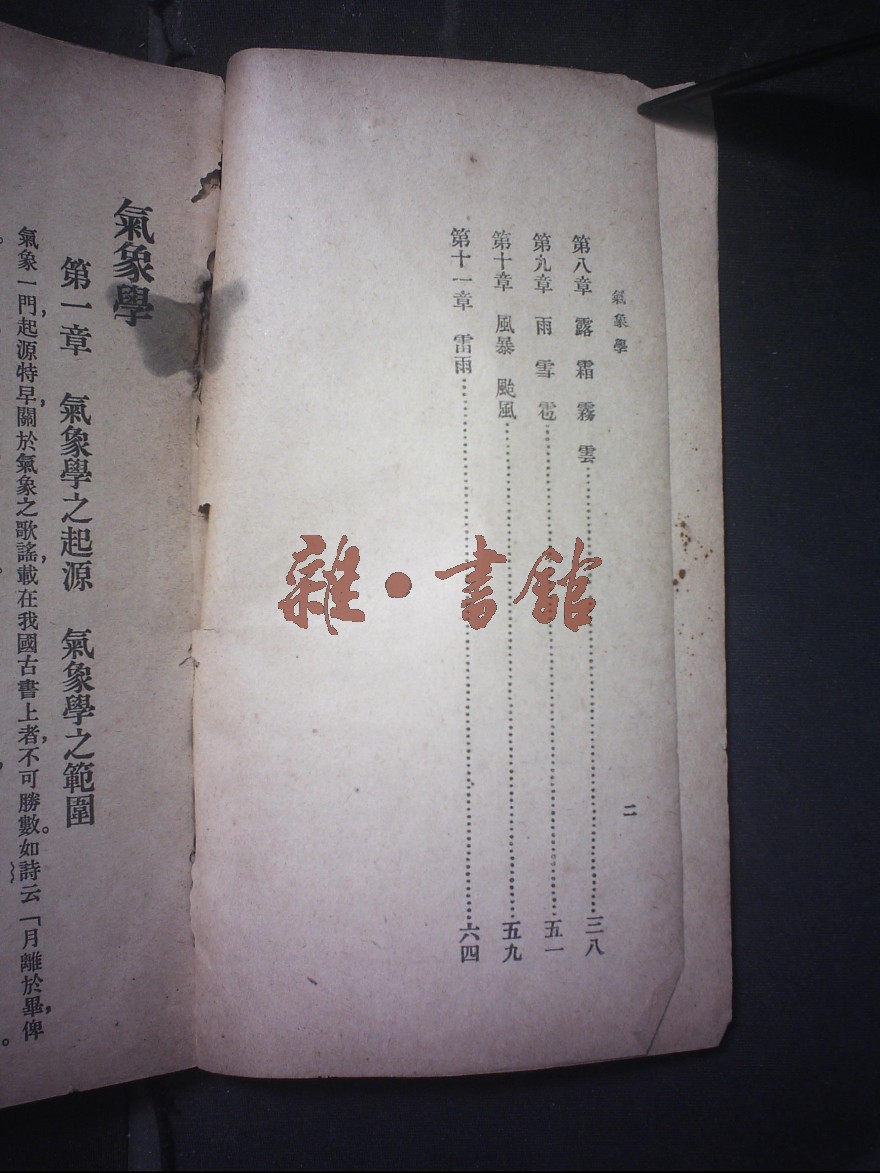 氣象學
第八章　露　霜　霧　雲……三八
第九章　雨　雪　雹……五一
第十章　風暴　颱風……五九
第十一章　雷雨……六四
二
雜·書館
氣象學
第一章　氣象學之起源　氣象學之範圍
氣象一門，起源特早，關於氣象之歌謠，載在我國古書上者，不可勝數。如詩云「月離於畢，俾